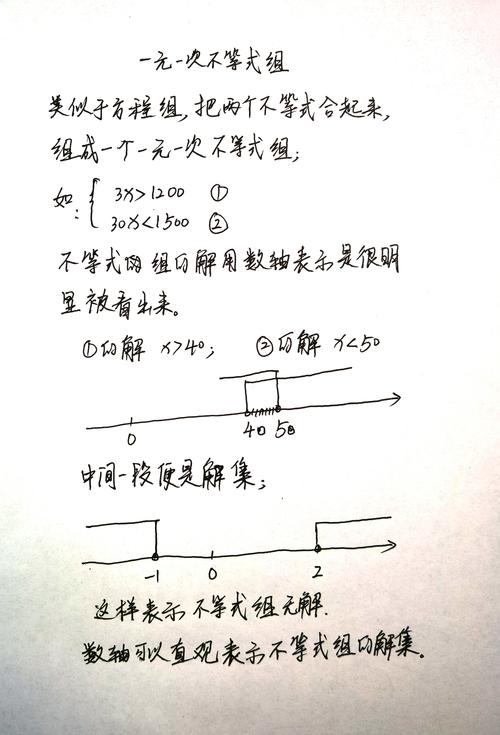 一元一次不等式组
类似于方程组,把两个不等式合起来,
组成一个一元一次不等式组;
如: { 3x>1200 ①
30x<1500 ②
不等式组的解用数轴表示是很明
显被看出来。
①的解 x>40; ②的解 x<50
0 40 50
中间一段便是解集;
-1 0 2
这样表示不等式组无解.
数轴可以直观表示不等式组的解集。